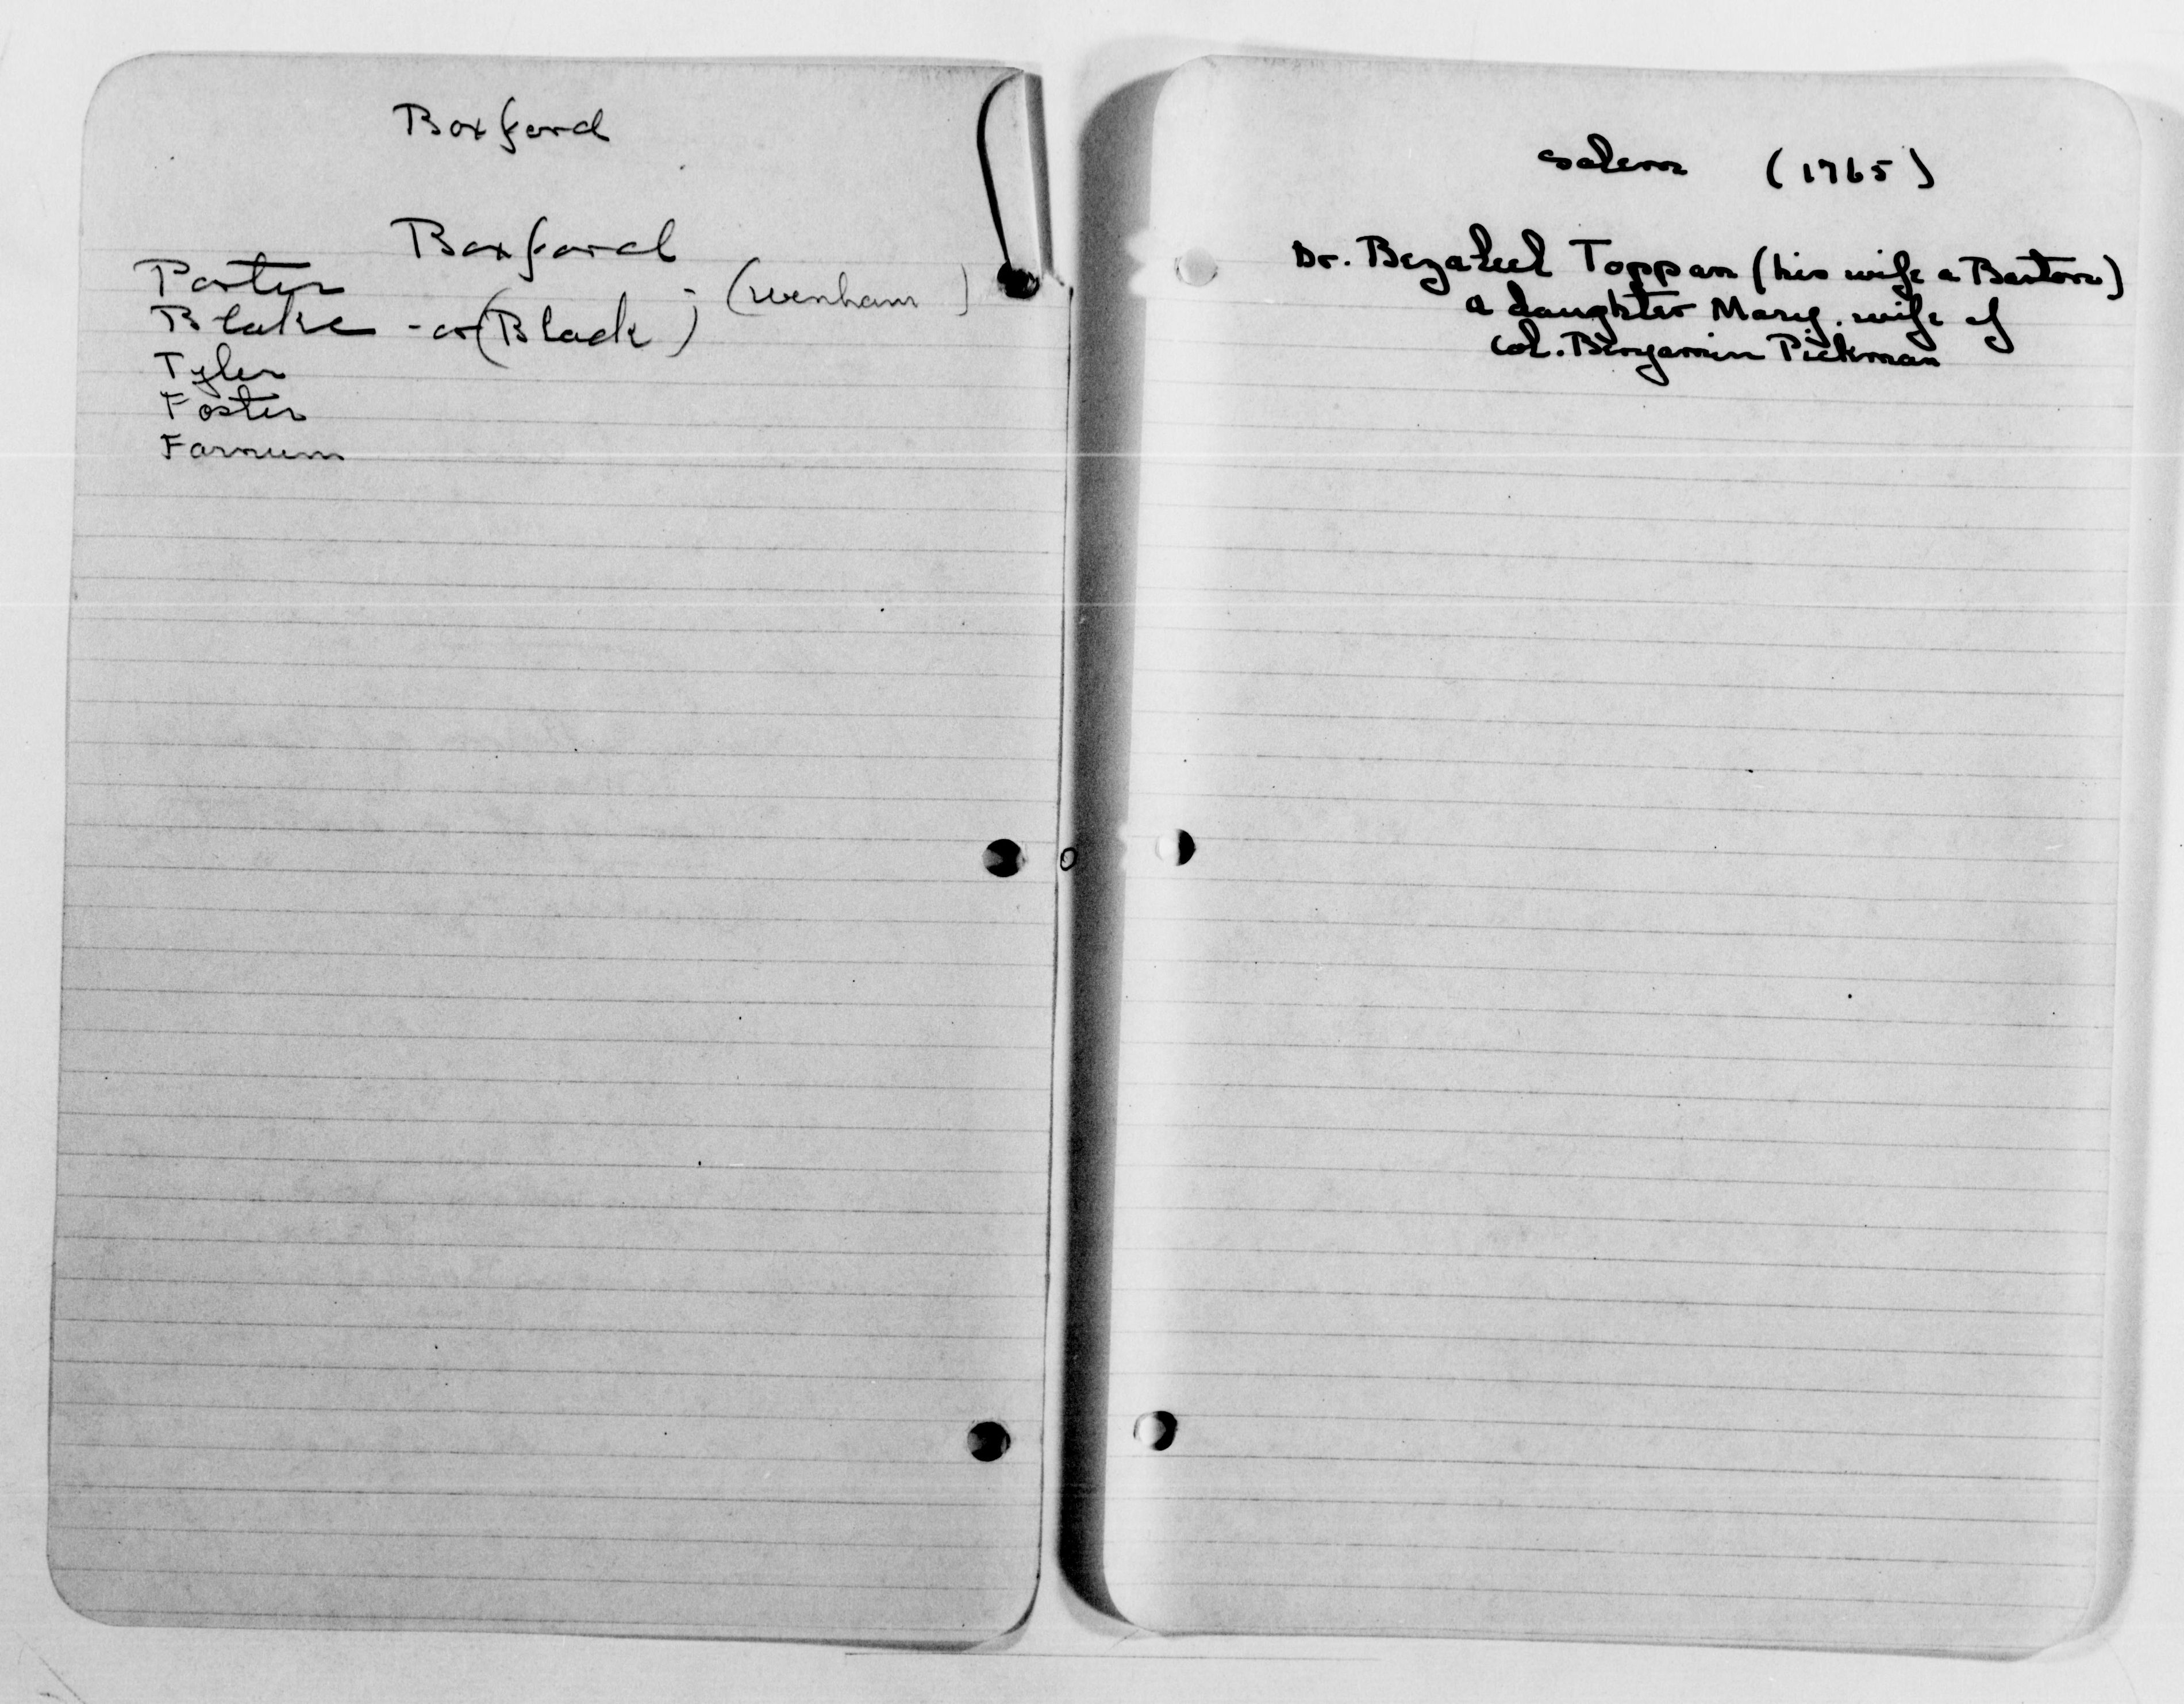 Boxford
Boxford
Porter
Blake - or (Black) - (Wenham)
Tyler
Foster
Farnum
Salem (1765)
Dr. Bezaleel Toppan (his wife a Barton)
a daughter Mary. wife of
Col. Benjamin Pickman